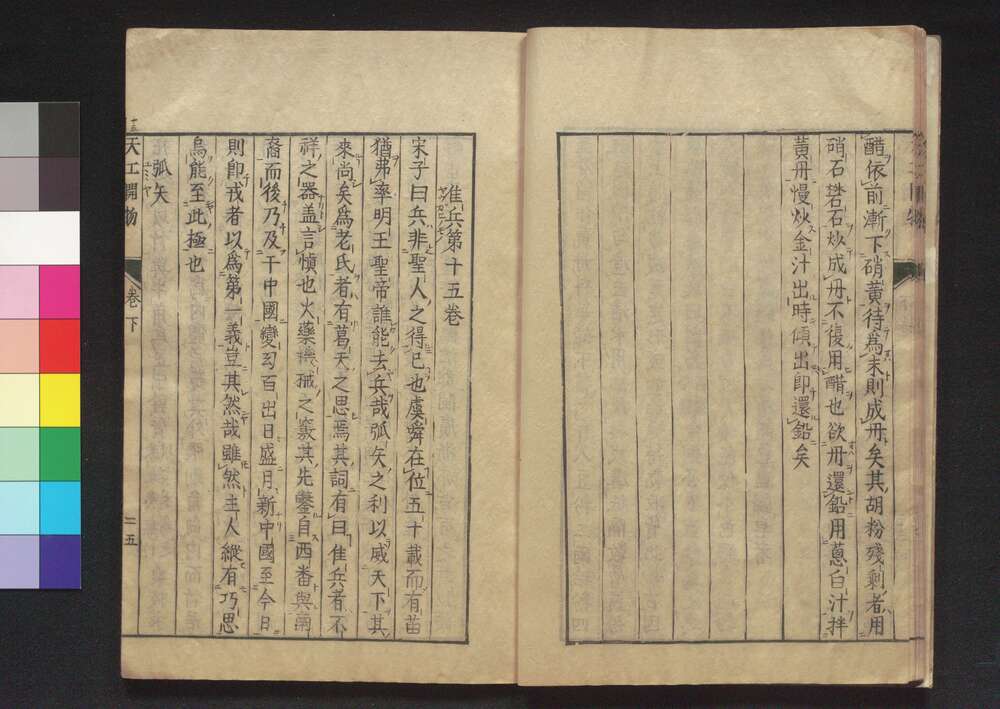 醋依前漸下硝黃待爲末則成丹矣其胡粉殘剩者用
硝石礬石炒成丹不復用醋也欲丹還鉛用蔥白汁拌
黃丹慢炒金汁出時傾出即還鉛矣
隹兵第十五卷
宋子曰兵非聖人之得已也虞舜在位五十載而有苗
猶弗率明王聖帝誰能去兵哉弧矢之利以威天下其
來尚矣爲老氏者有葛天之思焉其詞有曰隹兵者不
祥之器盖言愼也火藥機械之竅其先鑿自西番與南
裔而後乃及于中國變幻百出日盛月新中國至今日
則即戎者以爲第一義豈其然哉雖然生人縱有巧思
烏能至此極也
弧矢
天工開物
卷下
二五